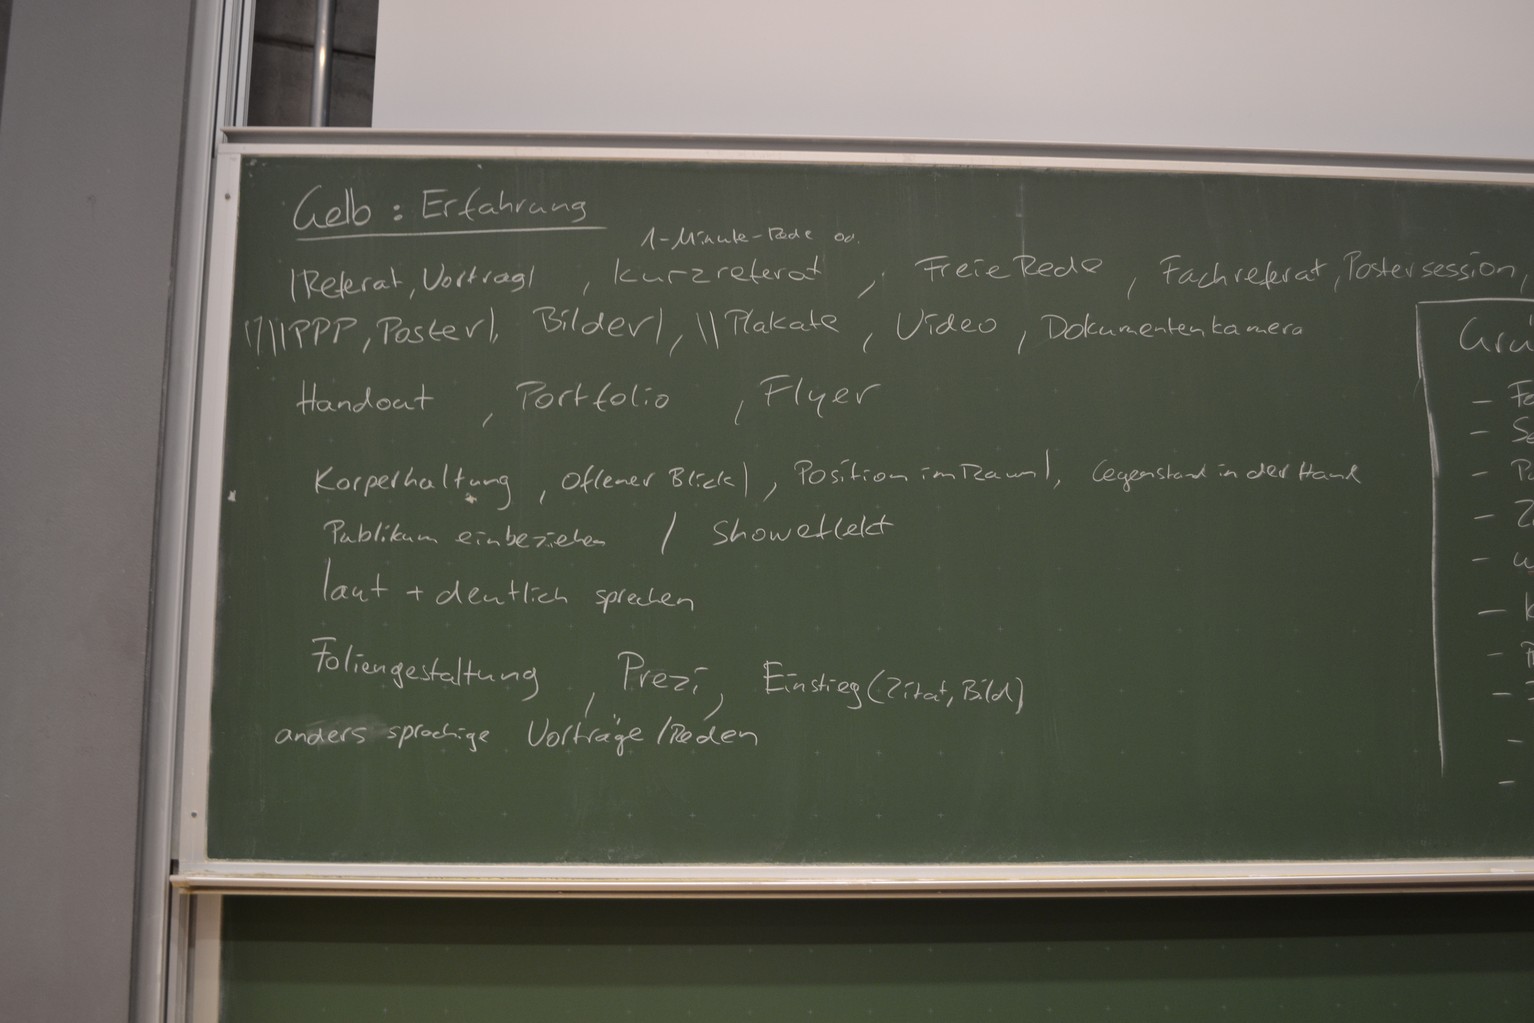 Gelb : Erfahrung
1-Minute-Rede
|Referat, Vortrag| , Kurzreferat , Freie Rede , Fachreferat, Postersession,
PPP, Poster|, Bilder|, || Plakate , Video , Dokumentenkamera
Handout , Portfolio , Flyer
Körperhaltung , offener Blick| , Position im Raum|, Gegenstand in der Hand
Publikum einbeziehen / Showeffekt
laut + deutlich sprechen
Foliengestaltung , Prezi, Einstieg (Zitat, Bild)
anders sprachige Vorträge / Reden